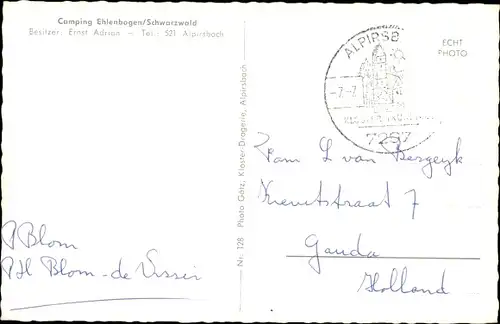 Camping Ehlenbogen/Schwarzwald
Besitzer: Ernst Adrion - Tel.: 521 Alpirsbach
ALPIRSB
-7.-7.
7297
ECHT
PHOTO
Nr. 128 Photo Götz, Kloster-Drogerie, Alpirsbach
Fam L van Bergeyk
straat 7
Gouda
Holland
P Blom
PH Blom-de Visser